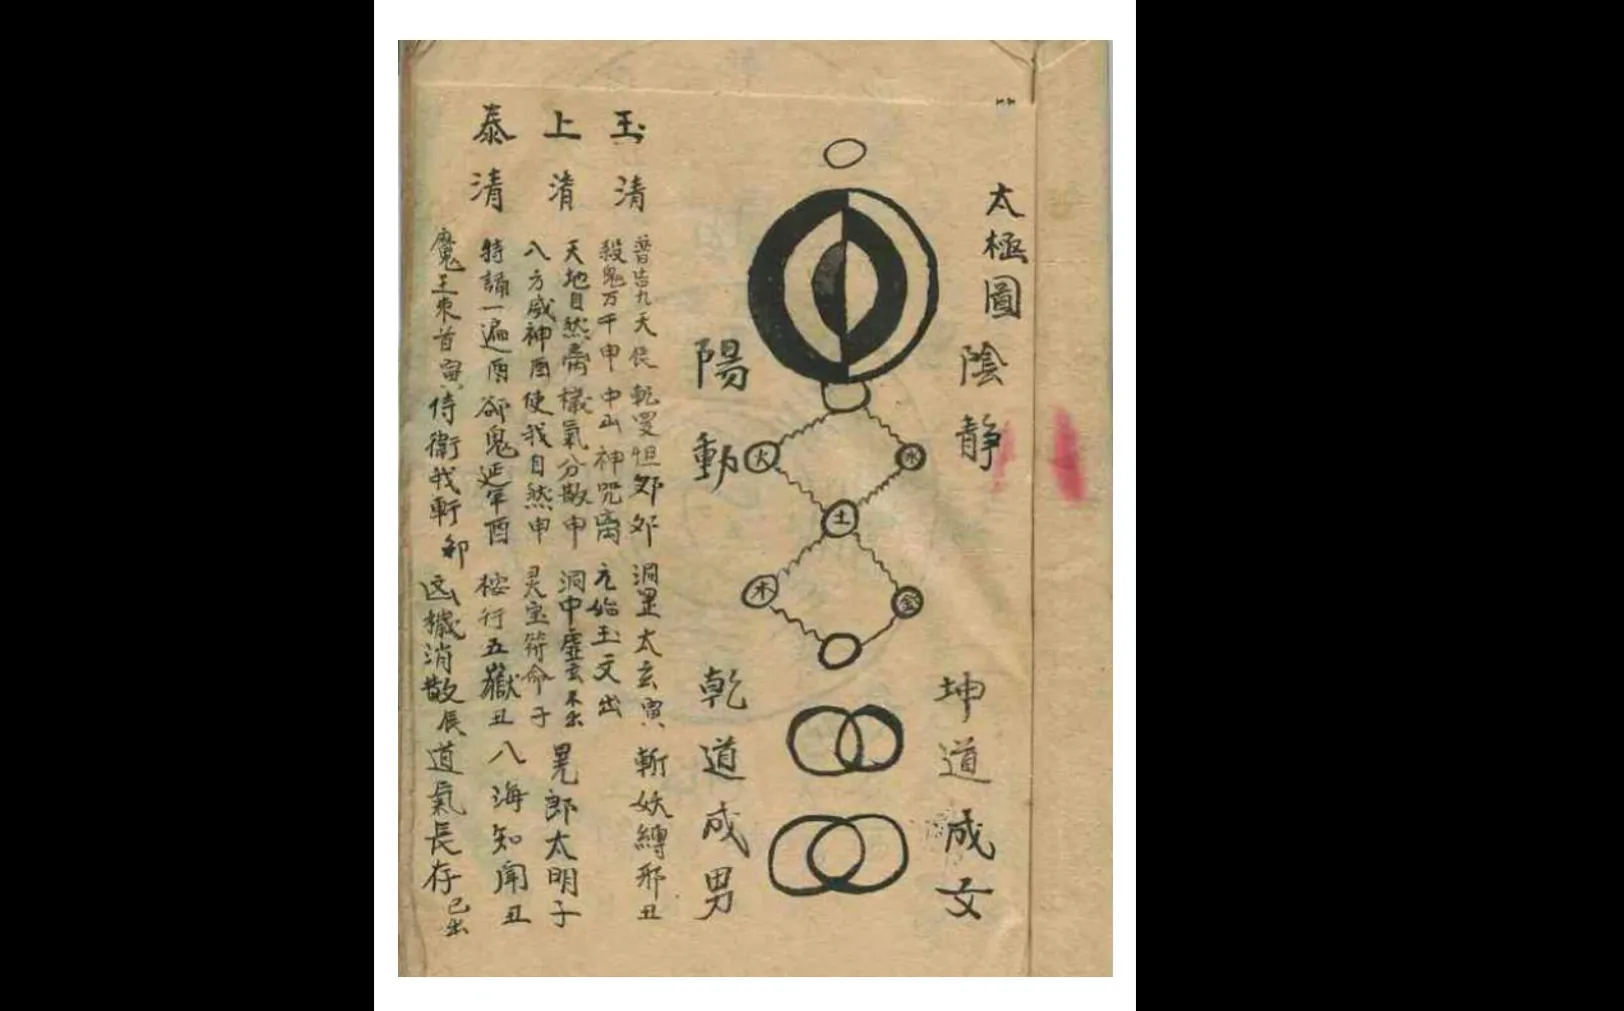 太極圖
陰靜
坤道成文
水
火
土
金
木
陽動
乾道成男
玉清
上清
泰清
普告九天辰 乾罡怛郍郍 洞罡太玄寅 斬妖縛邪丑
殺鬼万千申 中山神咒离 元始玉文出
天地自然 穢氣分散申 洞中虛玄未出 晃郎太明子
八方威神酉 使我自然申 灵宝符命子
特誦一遍酉 卻鬼延年酉 桉行五嶽丑 八海知聞丑
魔王束首寅 侍衛我軒卯 凶穢消散辰 道氣長存已出